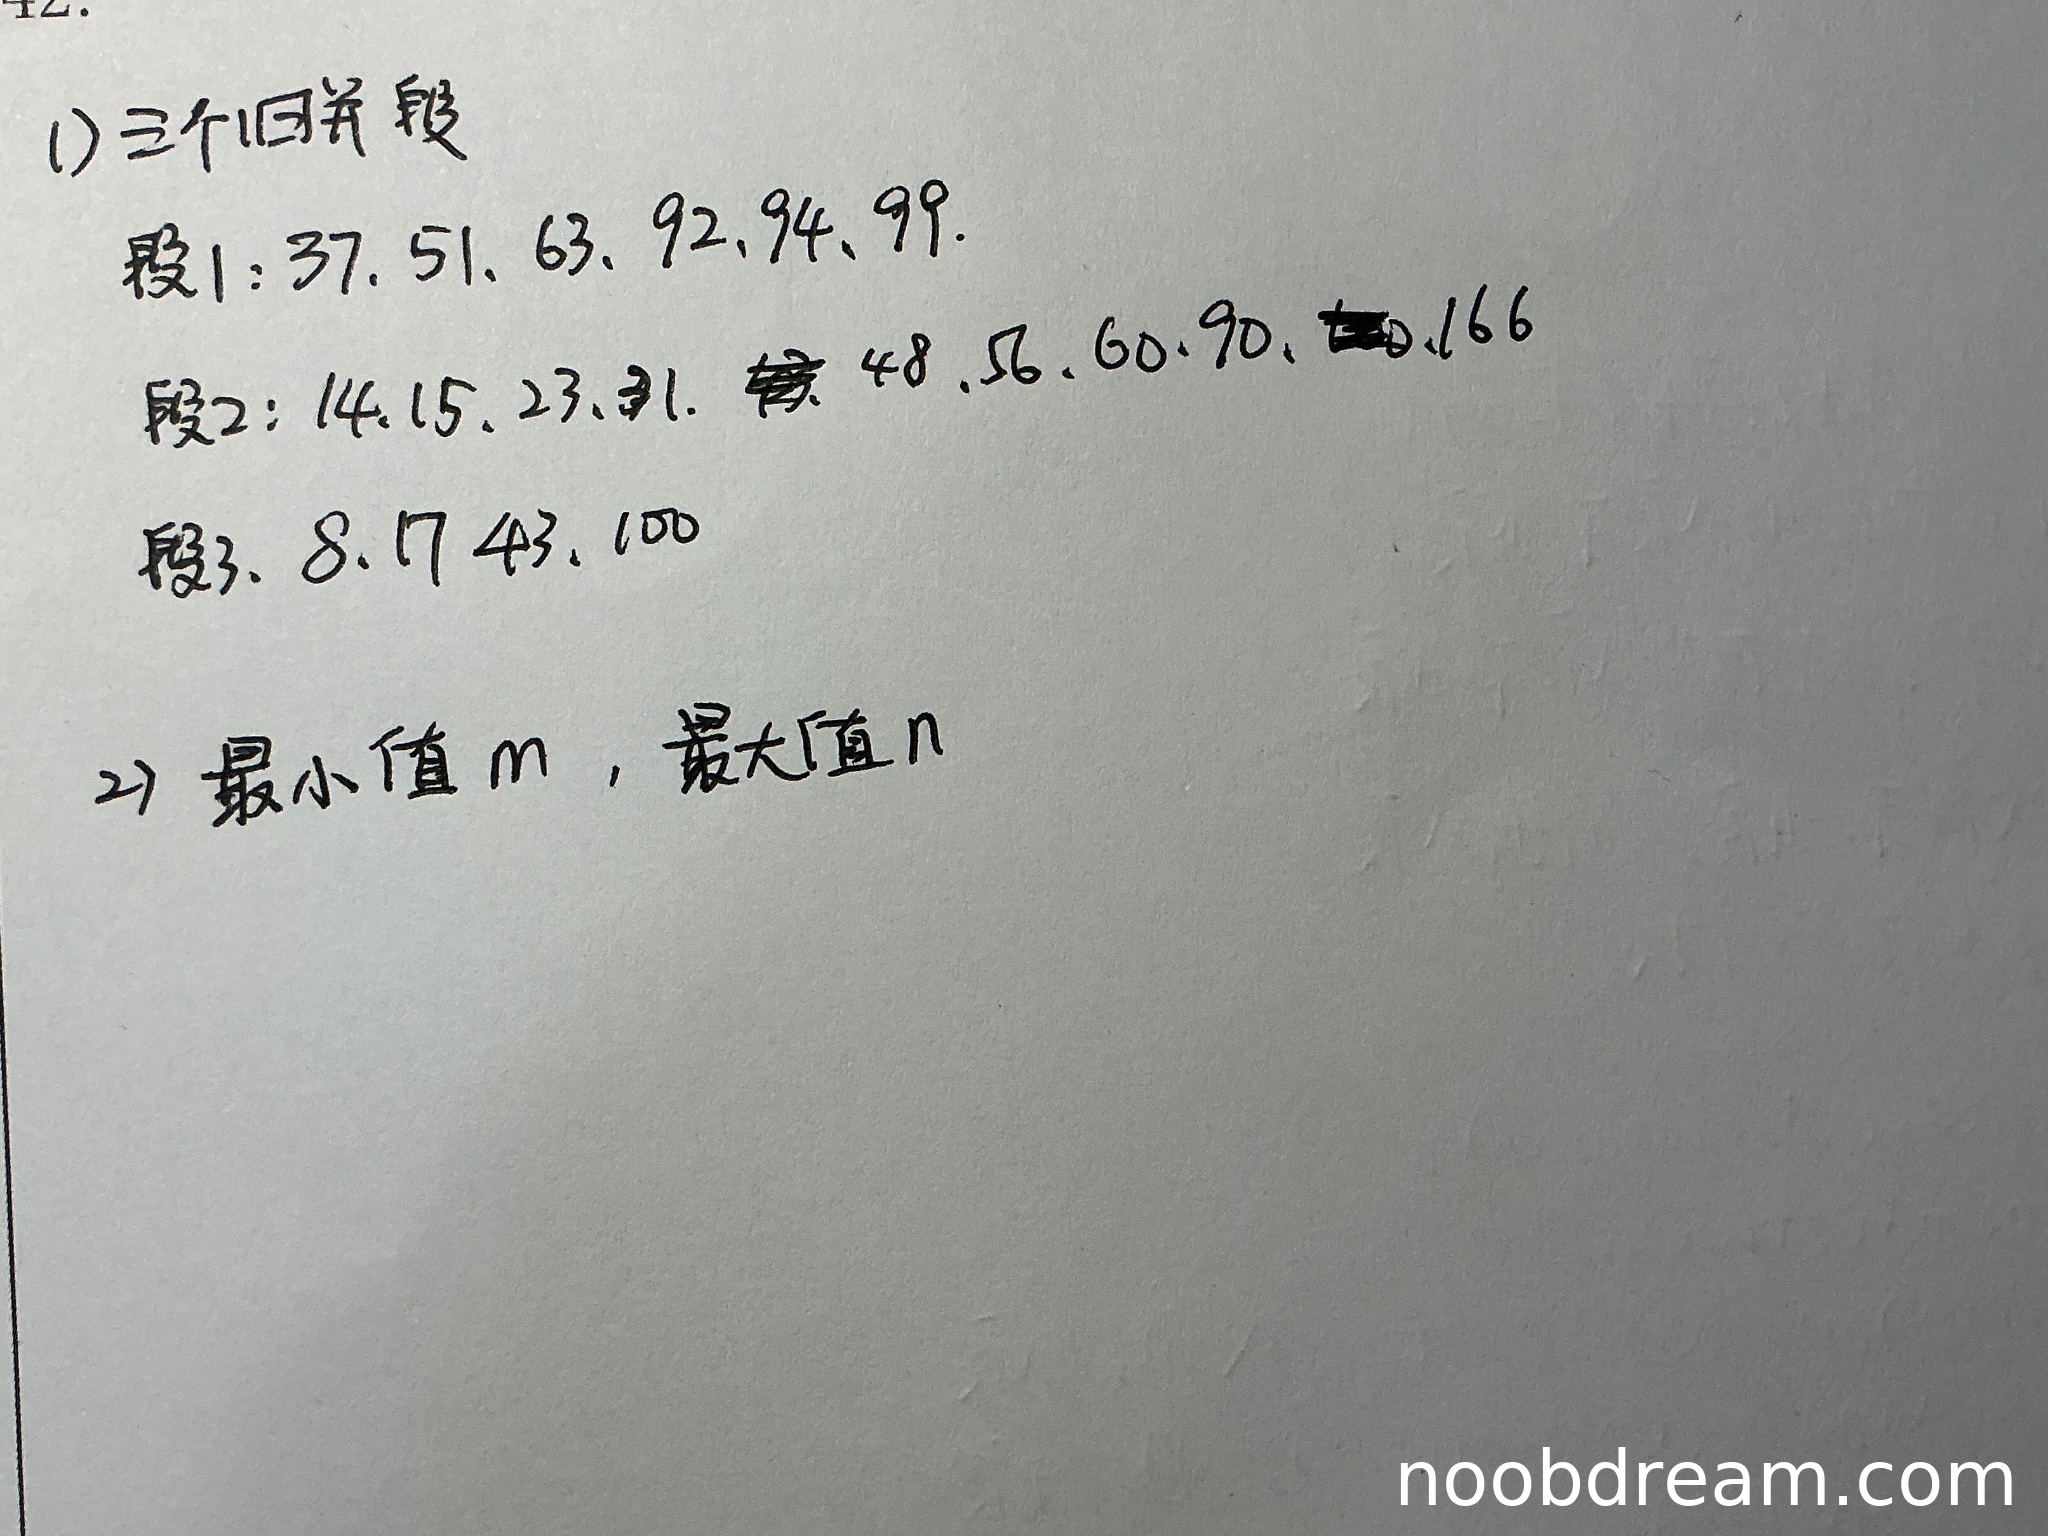 42.
1) 三个归并段
段1: 37. 51、63、92、94、99.
段2: 14.15、23、31. 48、56、60、90、0、166
段3、8、17 43、100
2) 最小值 m , 最大值 n
noobdream.com